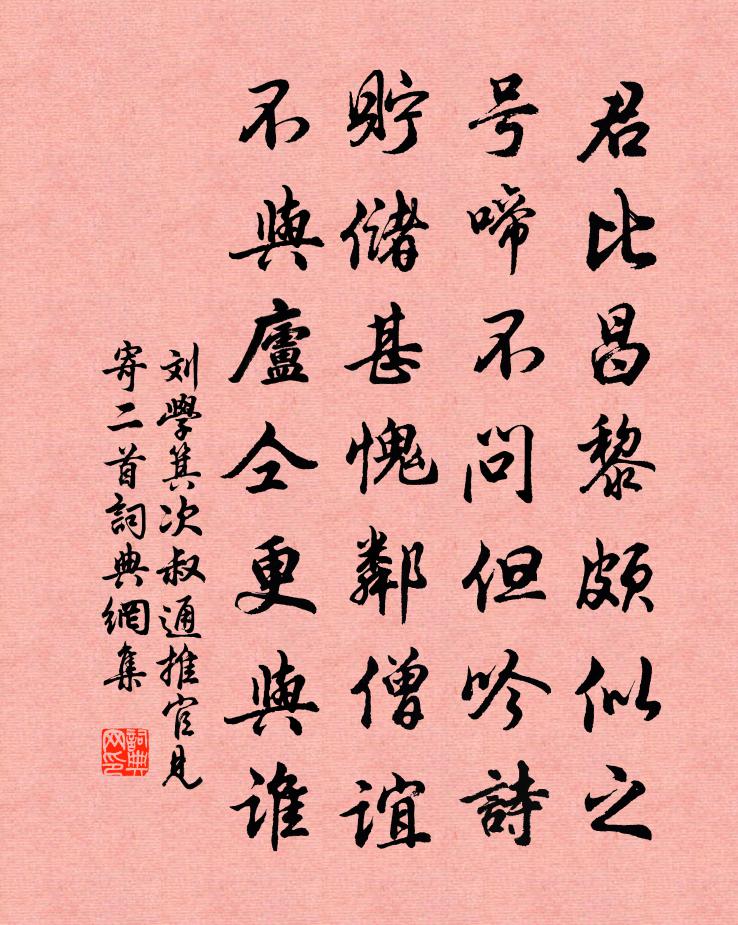 君比昌黎頗似之
号啼不问但吟詩
貯儲甚愧鄰僧谊
不與廬仝更與谁
刘學箕次叔通推官見
寄二首詞典網集
詞典网印